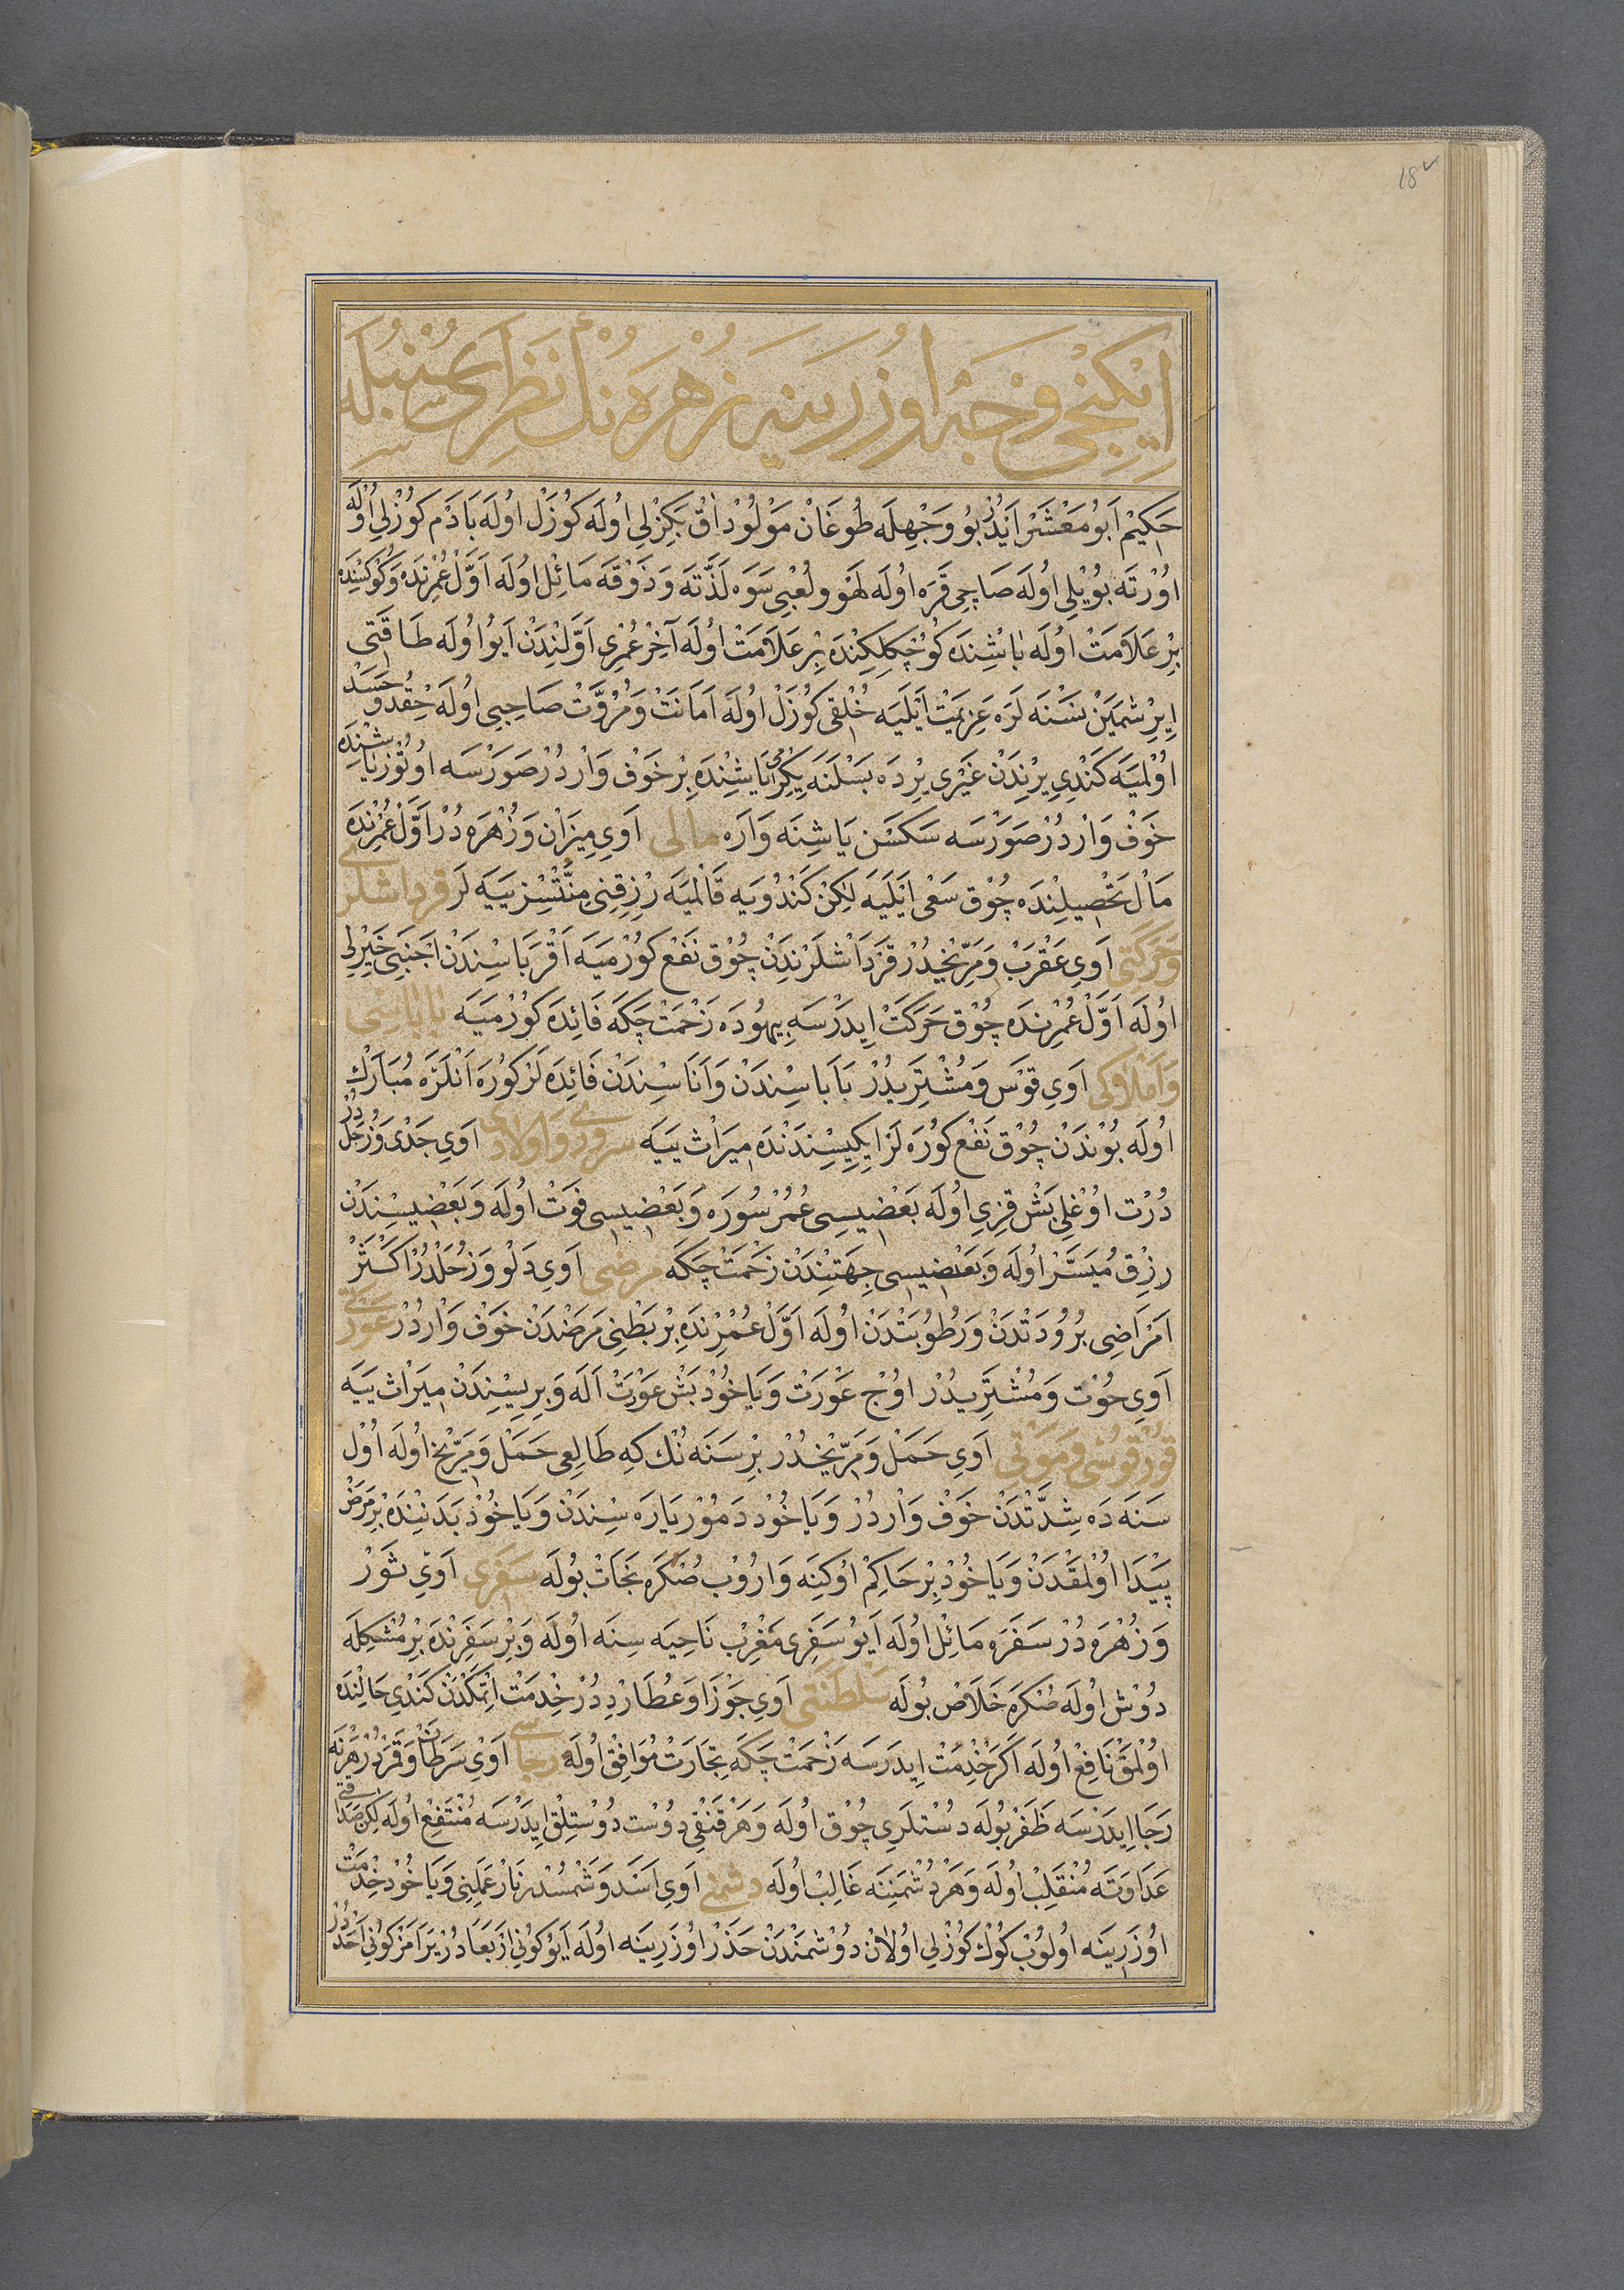 18
ایکنجی وجه اوزرینه زهره نك نظری سنبله
حکیم ابو معشر ایدر بو وجهله طوغان مولود اق بکزلی اوله کوزل اوله بادم کوزلی اوله
اورته بویلی اوله صاچی قره اوله لهو ولعبی سوه لذته وذوقه مائل اوله اول عمرنده وکوکسنده
بر علامت اوله باشنده کوچکلکنده بر علامت اوله آخر عمری اولندن ایو اوله طاقتی
ایرشمین نسنه لره عزیمت ایلیه خلقی کوزل اوله امانت ومروت صاحبی اوله حقد وحسد
اولمیه کندی یرندن غیری یرده بسلنه یکرمی یاشنده بر خوف واردر صورسه اوتوز یاشنده
خوف واردر صورسه سکسن یاشنه واره مالی اوی میزان وزهره در اول عمرنده
مال تحصیلنده چوق سعی ایلیه لکن کندویه قالمیه رزقنی منتسز ییه لر قرداشلری
وحرکتی اوی عقرب ومریخدر قرداشلرندن چوق نفع کورمیه اقرباسندن اجنبی خیرلی
اوله اول عمرنده چوق حرکت ایدرسه بیهوده زحمت چکه فائده کورمیه باباسی
واملاکی اوی قوس ومشتریدر باباسندن واناسندن فائده لر کوره انلره مبارك
اوله بوندن چوق نفع کوره لر ایکیسندنده میراث ییه سروری واولادی اوی جدی وزحلدر
درت اوغلی بش قزی اوله بعضیسی عمر سوره وبعضیسی فوت اوله وبعضیسندن
رزق میسر اوله وبعضیسی جهتندن زحمت چکه مرضی اوی دلو وزحلدر اکثر
امراضی برودتدن ورطوبتدن اوله اول عمرنده بر بطنی مرضدن خوف واردر عورتی
اوی حوت ومشتریدر اوچ عورت ویا خود بش عورت اله وبریسندن میراث ییه
قورقوسی وموتی اوی حمل ومریخدر بر سنه نك که طالعی حمل ومریخ اوله اول
سنه ده شدتدن خوف واردر ویا خود دمور یاره سندن ویا خود بدننده بر مرض
پیدا اولمقدن ویا خود بر حاکم اوکنه واروب صکره نجات بوله سفری اوی ثور
وزهره در سفره مائل اوله ایو سفری مغرب ناحیه سنه اوله وبر سفرنده بر مشکله
دوش اوله صکره خلاص بوله سلطنتی اوی جوزا وعطارددر خدمت اتمکدن کندی حالنده
اولمق نافع اوله اکر خدمت ایدرسه زحمت چکه تجارت موافق اوله رجاسی اوی سرطان وقمردر هر نه
رجا ایدرسه ظفر بوله دستلری چوق اوله وهر قنقی دوست دوستلق ایدرسه منتفع اوله لکن صدا
عداوته منقلب اوله وهر دشمننه غالب اوله دشمنی اوی اسد وشمسدر نار عملنی ویا خود خدمت
اوزرینه اولوب کوك کوزلی اولان دوشمندن حذر اوزرینه اوله ایو کونی اربعادر یرامز کونی احددر